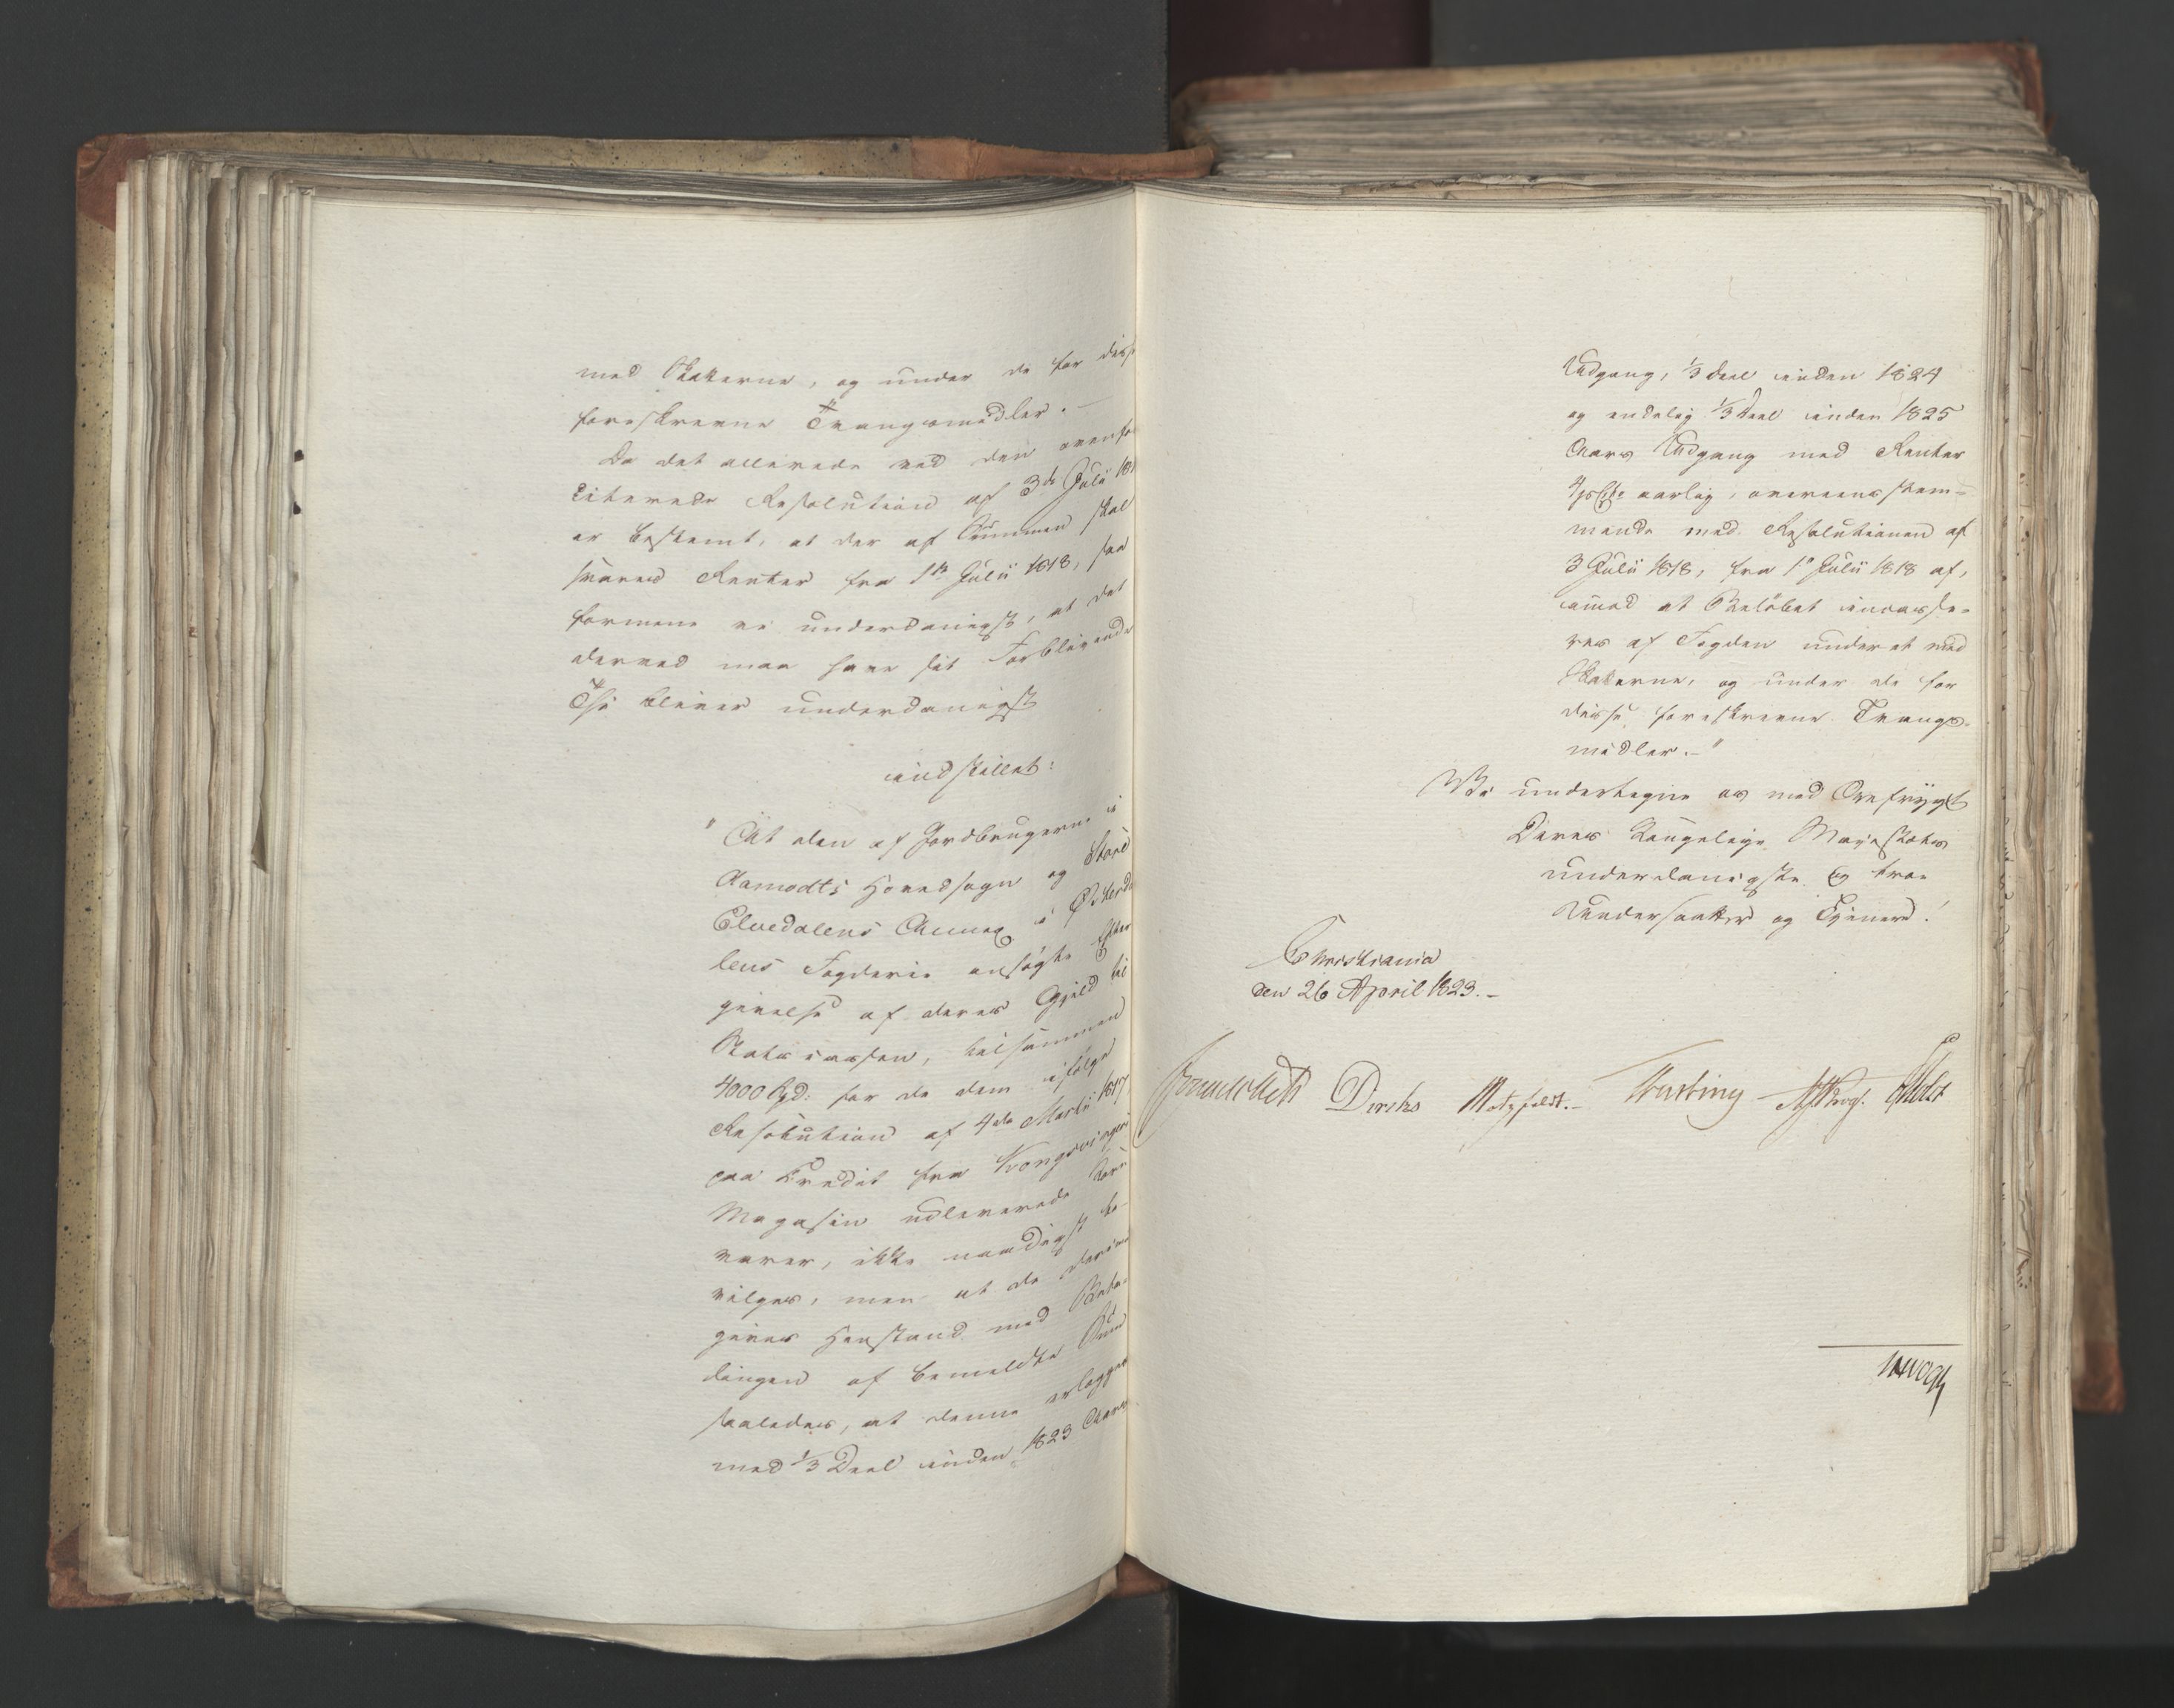 med Skatterne, og under de for diss
foreskrevne Tvangsmidler. —
Da det allerede ved den ovenfor
citerede Resolution af 3de Julii 181
er bestemt, at der af Summen skal
svares Renter fra 1ste Julii 1818, saa
formene vi underdanigst, at det
derved maa have sit Forblivende
Thi bliver underdanigst
indstillet:
"At den af Jordbrugerne i
Aamodts Hovedsogn og Store
Elvedalens Annex i Østerda
lens Fogderie ansøgte Efter
givelse af deres Gjeld til
Statscassen, tilsammen
4000 Spd: for de dem ifølge
Resolution af 4de Martii 1817
paa Credit fra Kongsvinger
Magasin udleverede Korn
varer, ikke naadigst be-
vilges, men at de derimod
gives Henstand med Beta-
lingen af bemeldte Sum
saaledes, at denne erlægges
med 1/3 Deel inden 1823 Aars
Udgang, 1/3 Deel inden 1824
og endelig 1/3 Deel inden 1825
Aars Udgang med Renter
4 pCto aarlig, overeensstem-
mende med Resolutionen af
3 Julii 1818, fra 1e Julii 1818 af,
imod at Beløbet inddre-
ves af Fogden under et med
Skatterne, og under de for
disse foreskrevne Tvangs-
midler.-"
Vi undertegne os med Ærefrygt
Deres Kongelige Majestæts
underdanigste og troe
Undersaatter og Tjenere!
Christiania
den 26 April 1823.-
Sommerhielm Diriks Motzfeldt.- Treschow Krog. Holst